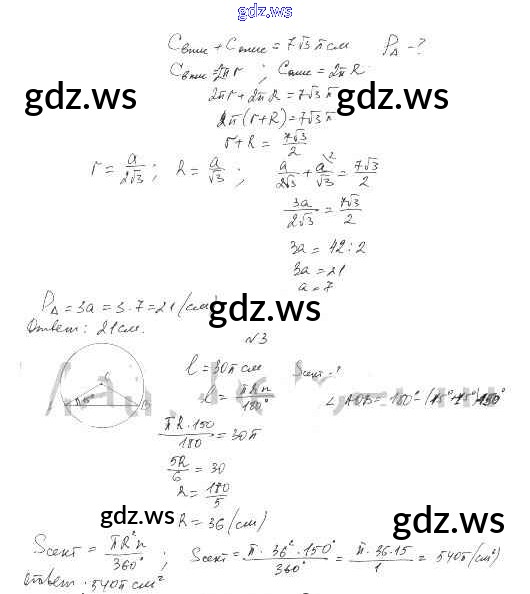 gdz.ws
gdz.ws
Cвпис + Cопис = 7√3 π см P△ - ?
Cвпис = 2πr ; Cопис = 2πR
gdz.ws gdz.ws
2πr + 2πR = 7√3 π
2π(r+R) = 7√3 π
r+R = 7√3/2
r = a/2√3 ; R = a/√3 ; a/2√3 + a/√3 = 7√3/2
3a/2√3 = 7√3/2
3a = 42 : 2
3a = 21
a = 7
gdz.ws
P△ = 3a = 3·7 = 21 (см)
Ответ: 21 см.
№3
l = 30π см Sсект - ?
l = πRn/180°
∠AOB = 180° - (15° + 15°) 150°
πR·150/180 = 30π
5R/6 = 30
R = 180/5
gdz.ws gdz.ws
R = 36 (см)
Sсект = πR²n/360° ; Sсект = π·36²·150°/360° = π·36·15/1 = 540π (см²)
Ответ. 540π см²